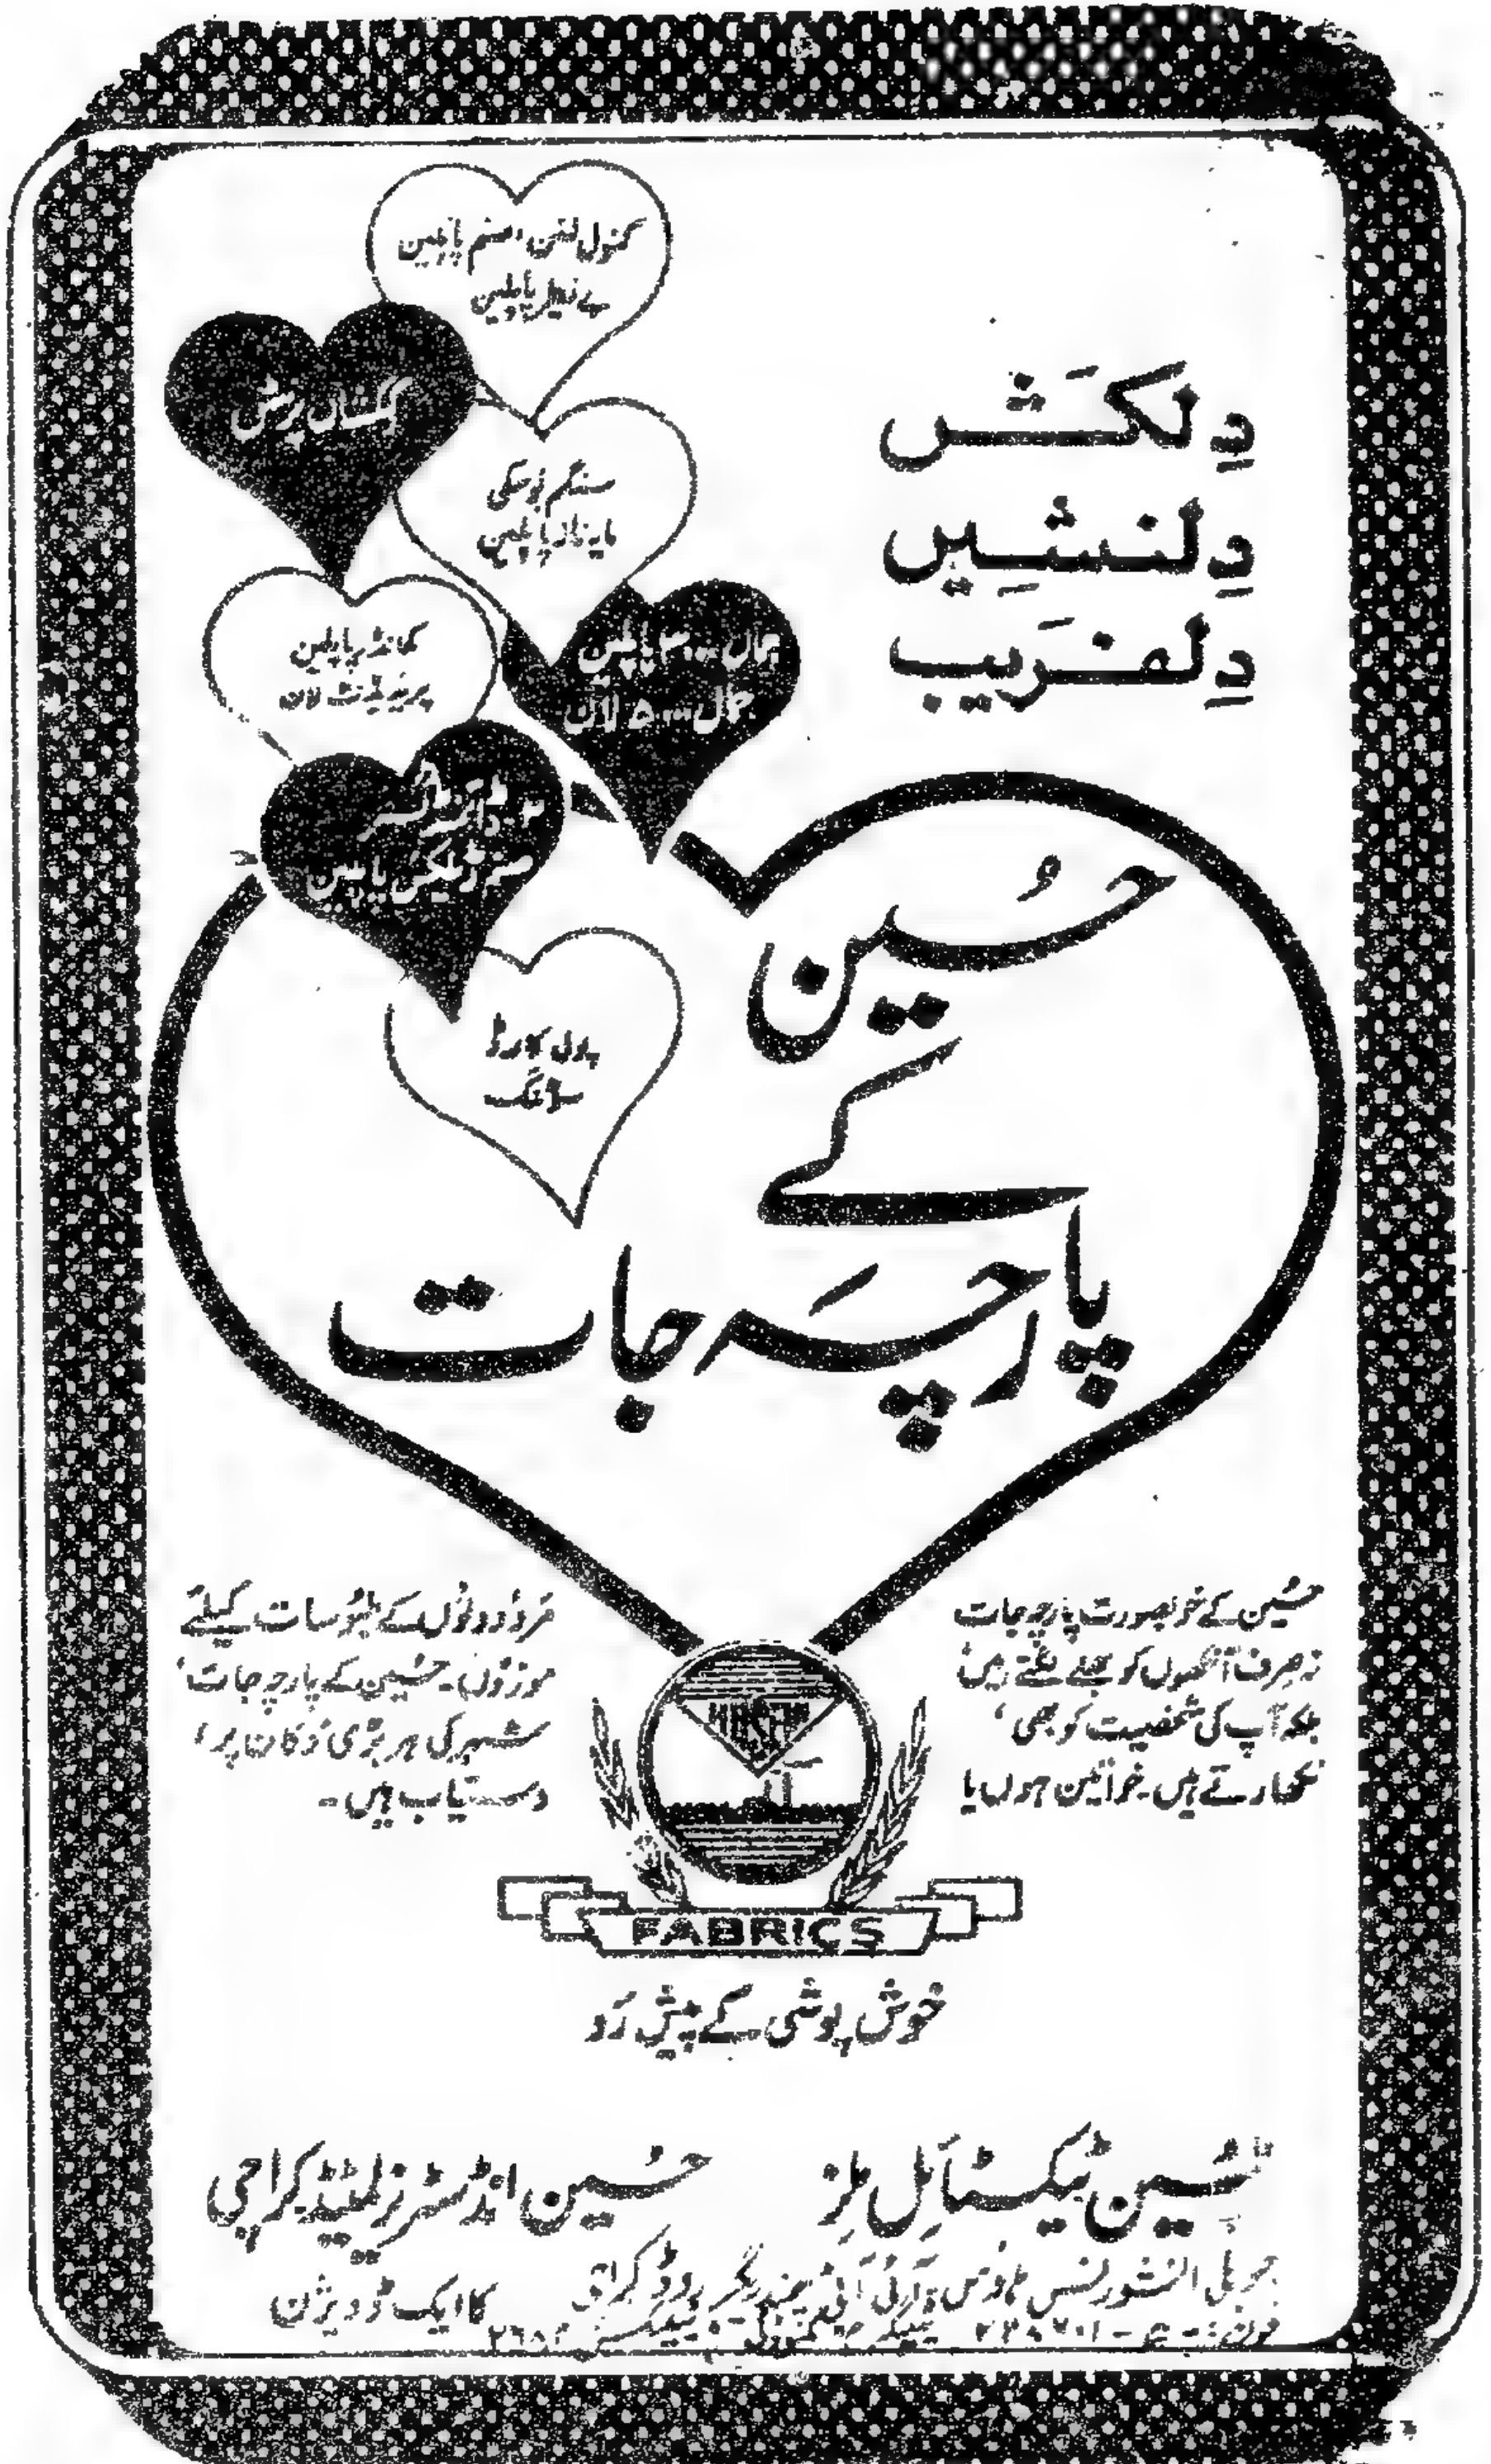 دِلکَش
دِلنشِیں
دِلفَریب
کنول لٹن، صنم پاپلین
بے نظیر پاپلین
سنگم بوسکی
مایہ ناز پاپلین
کمانڈر پاپلین
پریذیڈنٹ لان
جمال ۳۰۰۰ پاپلین
جمال ۵۰۰۰ لان
پاپلین
کارڈ
سوٹنگ
حُسین
کے
پارچَہ جات
حُسین کے خوبصورت پارچہ جات
نہ صرف آنکھوں کو بھلے لگتے ہیں
بلکہ آپ کی شخصیت کو بھی،
نکھارتے ہیں۔ خواتین ہوں یا
مَرد دونوں کے ملبُوسات کیلئے
موزوں۔ حُسین کے پارچہ جات،
شہر کی ہر بڑی دُکان پر،
دستیاب ہیں۔
FABRICS
خوش پوشی کے پیش رَو
حُسین ٹیکسٹائل مِلز
حُسین انڈسٹریز لمیٹڈ کراچی
کا ایک ڈویژن
جوبلی انشورنس ہاؤس، آئی آئی چندریگر روڈ کراچی
فون: